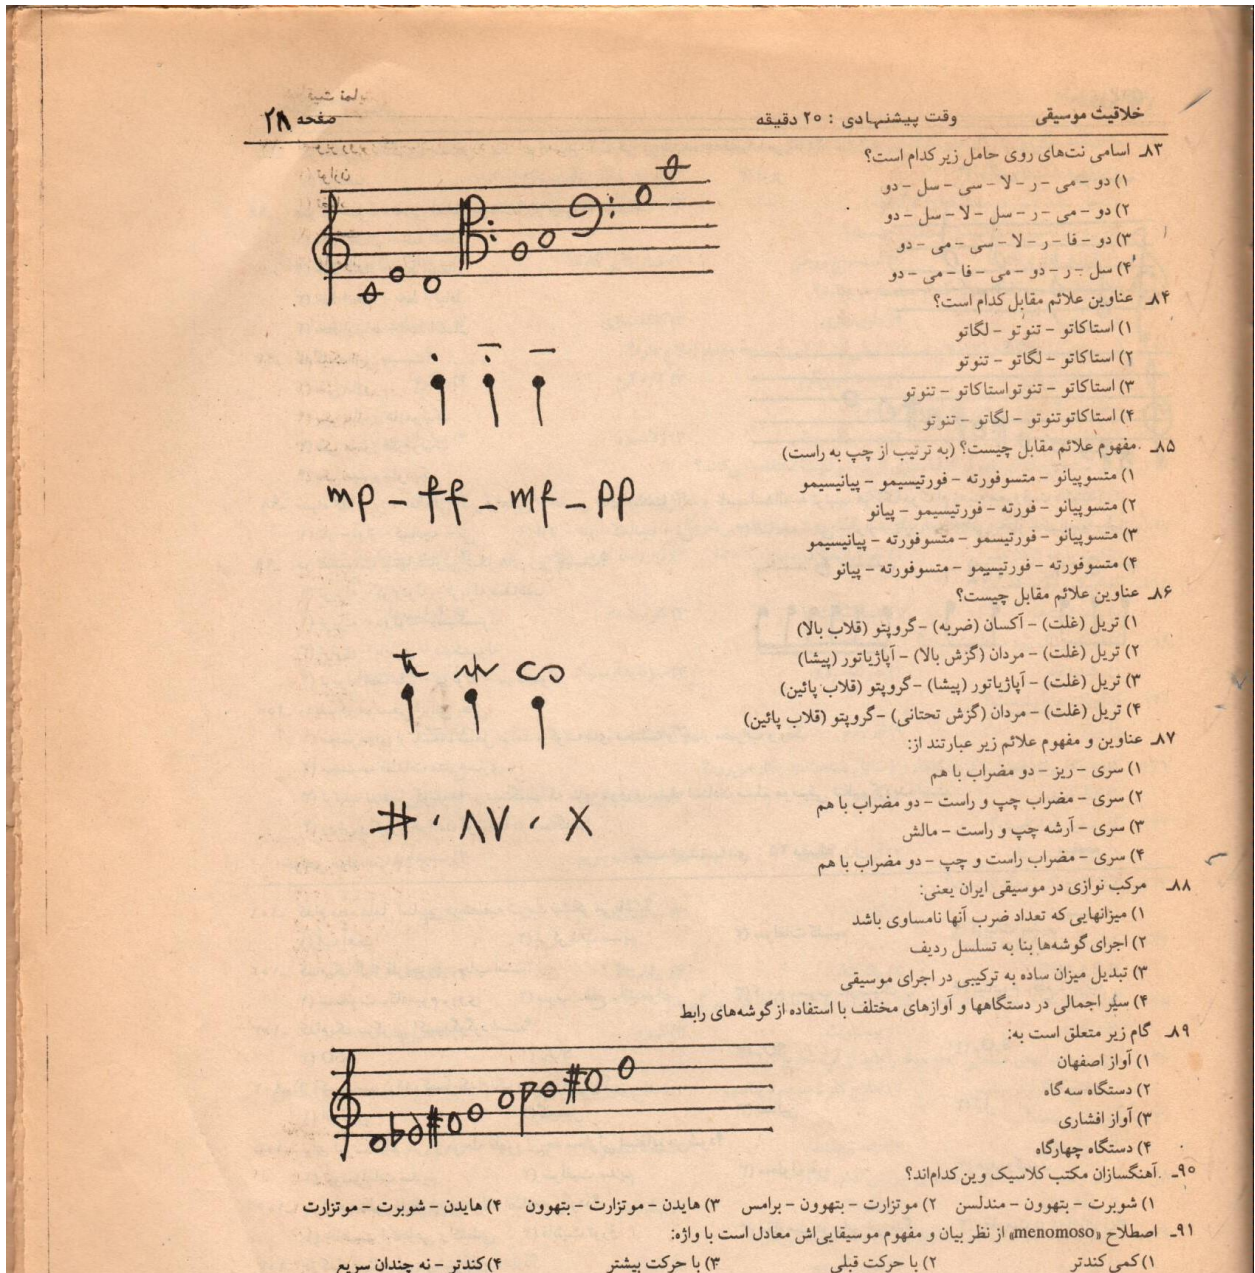 خلاقیت موسیقی وقت پیشنهادی : ۲۰ دقیقه صفحه ۲۸
۸۳ـ اسامی نت‌های روی حامل زیر کدام است؟
۱) دو – می – ر – لا – سی – سل – دو
۲) دو – می – ر – سل – لا – سل – دو
۳) دو – فا – ر – لا – سی – می – دو
۴) سل – ر – دو – می – فا – می – دو
۸۴ـ عناوین علائم مقابل کدام است؟
۱) استاکاتو – تنوتو – لگاتو
۲) استاکاتو – لگاتو – تنوتو
۳) استاکاتو – تنوتواستاکاتو – تنوتو
۴) استاکاتوتنوتو – لگاتو – تنوتو
۸۵ـ مفهوم علائم مقابل چیست؟ (به ترتیب از چپ به راست)
۱) متسوپیانو – متسوفورته – فورتیسیمو – پیانیسیمو
mp – ff – mf – pp
۲) متسوپیانو – فورته – فورتیسیمو – پیانو
۳) متسوپیانو – فورتیسمو – متسوفورته – پیانیسیمو
۴) متسوفورته – فورتیسیمو – متسوفورته – پیانو
۸۶ـ عناوین علائم مقابل چیست؟
۱) تریل (غلت) – آکسان (ضربه) –گروپتو (قلاب بالا)
۲) تریل (غلت) – مردان (گزش بالا) – آپاژیاتور (پیشا)
۳) تریل (غلت) – آپاژیاتور (پیشا) –گروپتو (قلاب پائین)
۴) تریل (غلت) – مردان (گزش تحتانی) –گروپتو (قلاب پائین)
۸۷ـ عناوین و مفهوم علائم زیر عبارتند از:
۱) سری – ریز – دو مضراب با هم
۲) سری – مضراب چپ و راست – دو مضراب با هم
# . ۸۷ . X
۳) سری – آرشه چپ و راست – مالش
۴) سری – مضراب راست و چپ – دو مضراب با هم
۸۸ـ مرکب نوازی در موسیقی ایران یعنی:
۱) میزانهایی که تعداد ضرب آنها نامساوی باشد
۲) اجرای گوشه‌ها بنا به تسلسل ردیف
۳) تبدیل میزان ساده به ترکیبی در اجرای موسیقی
۴) سیر اجمالی در دستگاهها و آوازهای مختلف با استفاده از گوشه‌های رابط
۸۹ـ گام زیر متعلق است به:
۱) آواز اصفهان
۲) دستگاه سه گاه
۳) آواز افشاری
۴) دستگاه چهارگاه
۹۰ـ آهنگسازان مکتب کلاسیک وین کدام‌اند؟
۱) شوبرت – بتهوون – مندلسن ۲) موتزارت – بتهوون – برامس ۳) هایدن – موتزارت – بتهوون ۴) هایدن – شوبرت – موتزارت
۹۱ـ اصطلاح «menomoso» از نظر بیان و مفهوم موسیقایی‌اش معادل است با واژه:
۱) کمی کندتر ۲) با حرکت قبلی ۳) با حرکت بیشتر ۴) کندتر – نه چندان سریع